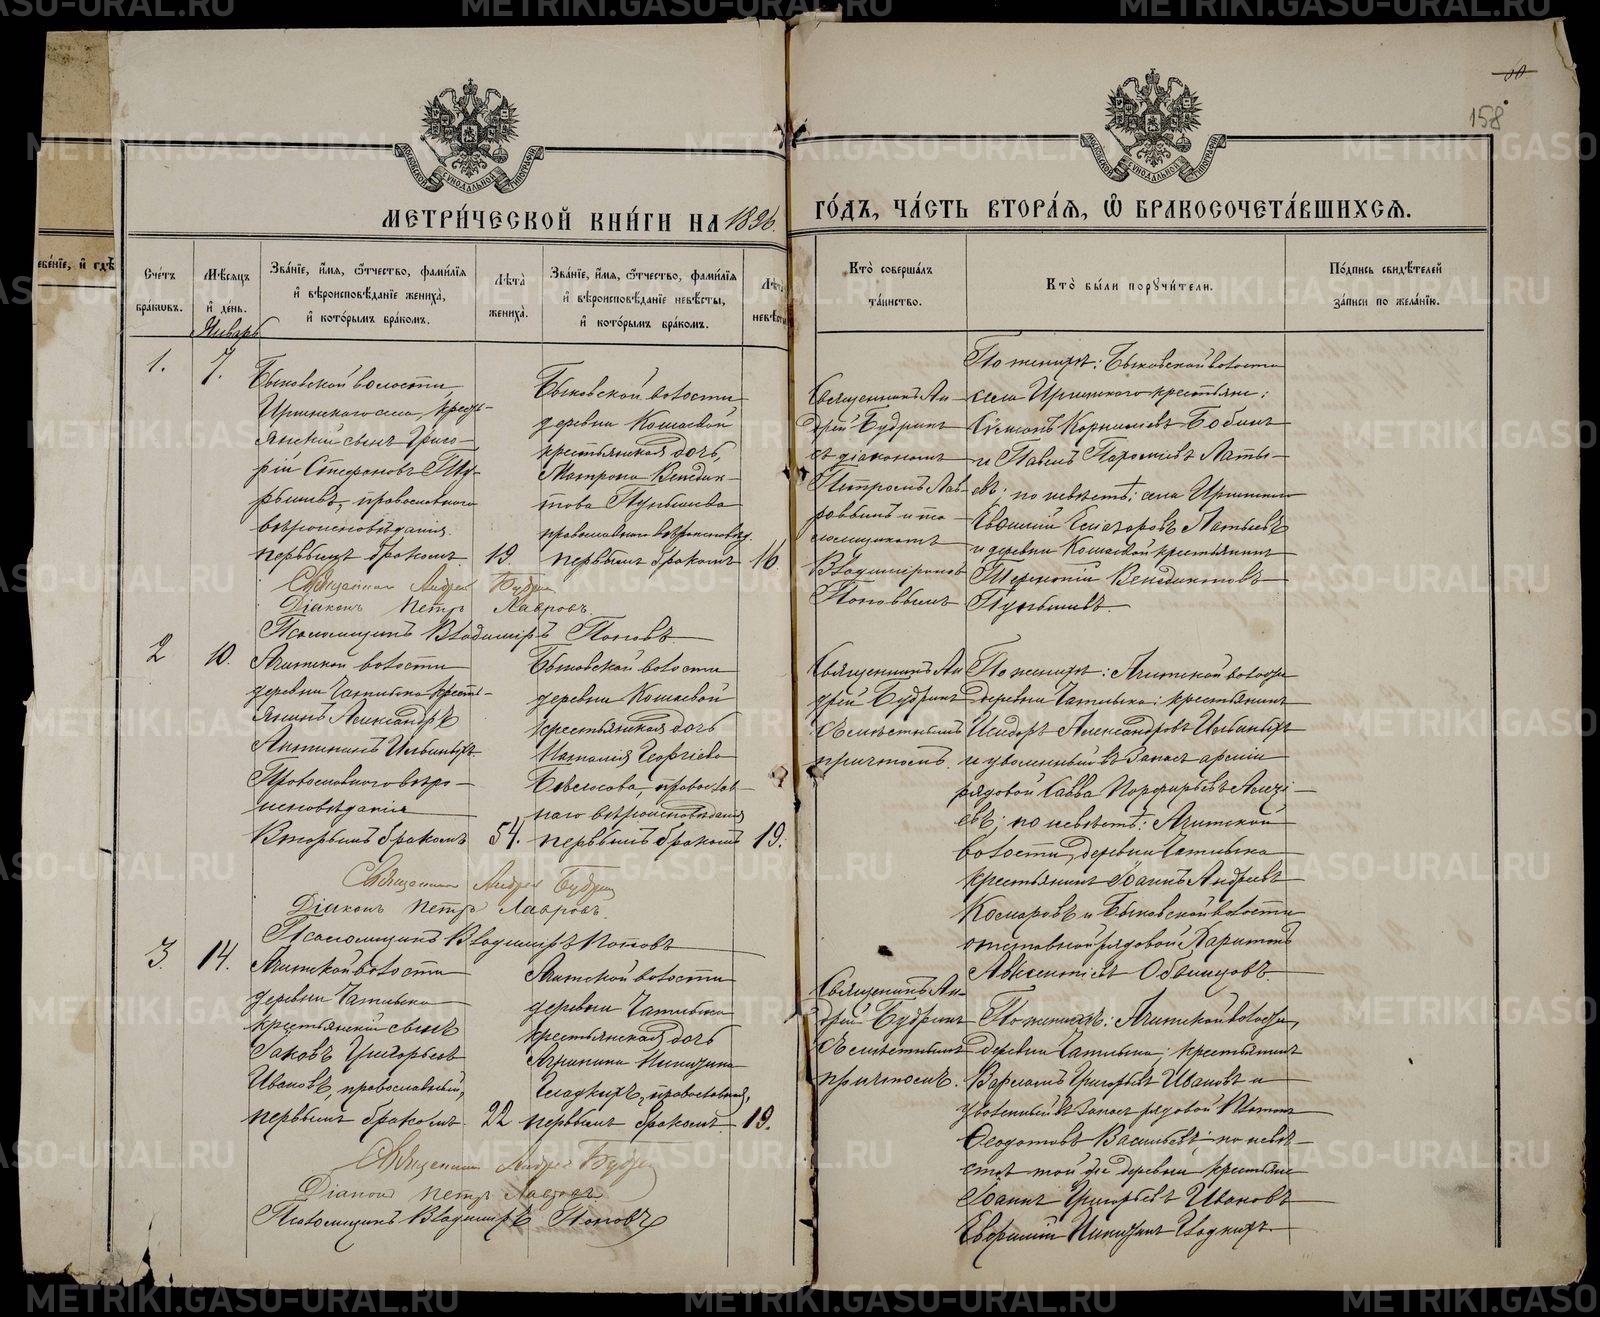 МЕТРИ́ЧЕСКОЙ КНИ́ГИ НА 1896.
ГО́ДЪ, ЧА́СТЬ ВТОРА́Я, Ѡ БРАКОСОЧЕТА́ВШИХСЯ.
158
Сче́тъ бра́кѡвъ.
Мѣ́сяцъ и҆ де́нь.
Зва́нїе, и҆́мя, ѻ҆́тчество, фами́лїя и҆ вѣроисповѣ́данїе жениха̀, и҆ кото́рымъ бра́комъ.
Лѣ́та жениха̀.
Зва́нїе, и҆́мя, ѻ҆́тчество, фами́лїя и҆ вѣроисповѣ́данїе невѣ́сты, и҆ кото́рымъ бра́комъ.
Лѣ́та невѣ́сты
Кто̀ соверша́лъ та́инство.
Кто̀ бы́ли порꙋчи́тели.
По́дпись свидѣ́телей за́писи по жела́нїю.
Январь
1.
7.
Быковской волости
Иргинского села, кресть-
янскій сынъ Григо-
рій Стефановъ
православнаго
вѣроисповѣданія
первымъ бракомъ
19.
Быковской волости
деревни Кошаевой
крестьянская дочь,
Матрона Венедик-
това Пупышева
православнаго
первымъ бракомъ
16
Священникъ Ан-
дрей Будринъ
съ діакономъ
Петромъ Лав-
ровымъ и пса-
ломщикомъ
Владиміромъ
Поповымъ
По женихѣ: Быковской волости
села Иргинского крестьяне:
Сѵмеонъ Корниліевъ Бобинъ
и Павелъ Латы-
евъ; по невѣстѣ: села Иргинского
Евѳимій Латыевъ
и деревни Кошаевой крестьянинъ
Терентій Венедиктовъ
Пупышевъ
Священникъ Андрей Будринъ
Діаконъ Петръ Лавровъ.
Псаломщикъ Владиміръ Поповъ
2
10.
Ачитской волости
деревни Гатыева кресть-
янинъ Александръ
Антипинъ Ильиныхъ
Православнаго вѣро-
исповѣданія
Вторымъ бракомъ
54.
Быковской волости
деревни Кошаевой
крестьянская дочь
Наталія Георгіева
Бѣлоусова, православ-
наго вѣроисповѣданія
первымъ бракомъ
19.
Священникъ Ан-
дрей Будринъ
съ мѣстнымъ
причтомъ.
По женихѣ: Ачитской волости
деревни крестьянинъ
Исидоръ Александровъ Ильиныхъ
и уволенный въ запасъ арміи
рядовой Савва Порфирьевъ
по невѣстѣ: Ачитской
волости, деревни
крестьянинъ Іоаннъ Андреевъ
Комаровъ и Быковской волости
отставной рядовой Харитонъ
Авксентіевъ
Священникъ Андрей Будринъ
Діаконъ Петръ Лавровъ.
Псаломщикъ Владиміръ Поповъ
3.
14.
Ачитской волости
деревни
крестьянскій сынъ
Іаковъ Григорьевъ
Ивановъ, православный,
первымъ бракомъ
22
Ачитской волости
деревни
крестьянская дочь
Агрипина Никитина
Гладкихъ, православная,
первымъ бракомъ
19.
Священникъ Ан-
дрей Будринъ
съ мѣстнымъ
причтомъ.
По женихѣ: Ачитской волости,
деревни крестьянинъ
Варлаамъ Григорьевъ Ивановъ и
уволенный въ запасъ рядовой
Ѳеодотовъ Васильевъ; по невѣ-
стѣ той же деревни крестьяне
Іоаннъ Григорьевъ Ивановъ
Никитинъ Гладкихъ
Священникъ Андрей Будринъ
Діаконъ Петръ Лавровъ
Псаломщикъ Владиміръ Поповъ
METRIKI.GASO-URAL.RU